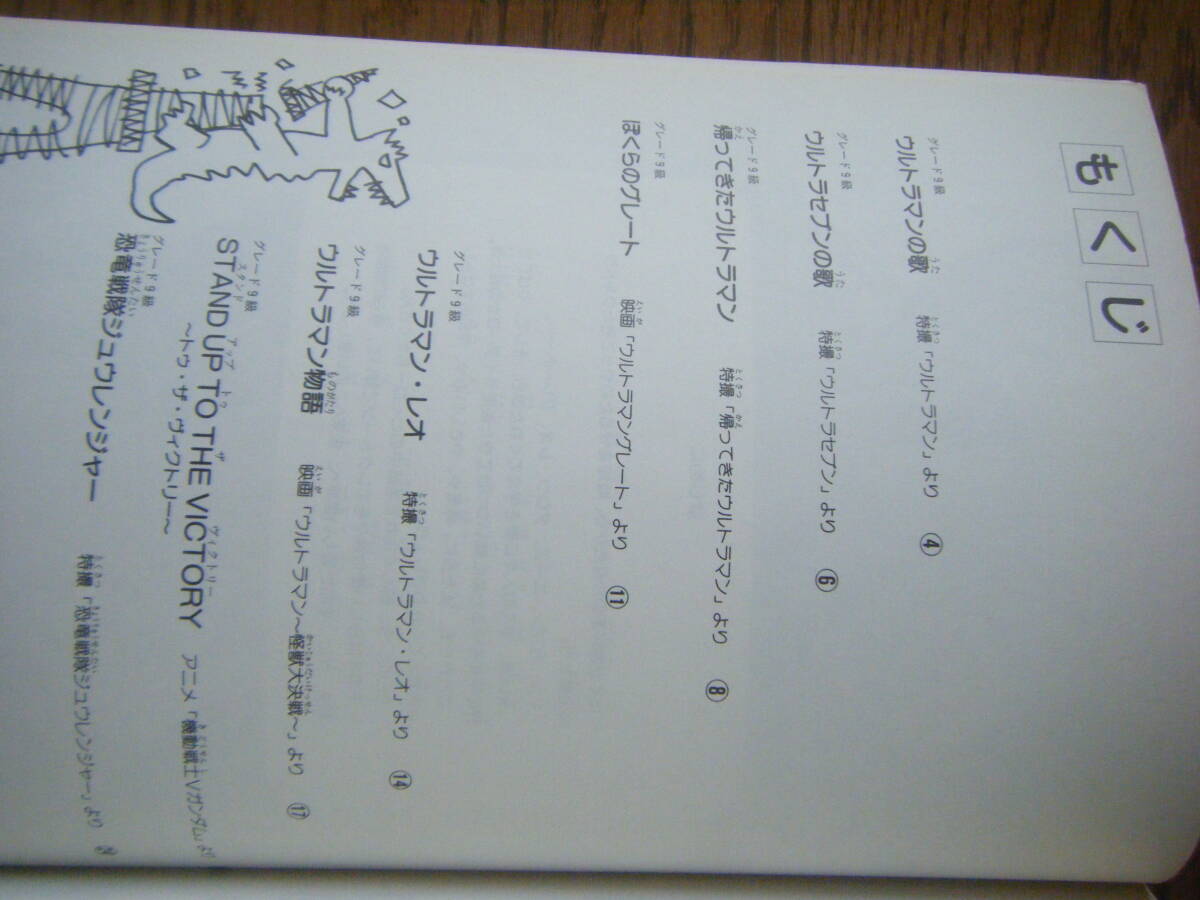 もくじ
グレード9級
ウルトラマンの歌 特撮「ウルトラマン」より ④
グレード9級
ウルトラセブンの歌 特撮「ウルトラセブン」より ⑥
グレード9級
帰ってきたウルトラマン 特撮「帰ってきたウルトラマン」より ⑧
グレード9級
ぼくらのグレート 映画「ウルトラマングレート」より ⑪
グレード9級
ウルトラマン・レオ 特撮「ウルトラマン・レオ」より ⑭
グレード9級
ウルトラマン物語 映画「ウルトラマン〜怪獣大決戦〜」より ⑰
グレード9級
STAND UP TO THE VICTORY アニメ「機動戦士Vガンダム」より
〜トゥ・ザ・ヴィクトリー〜
グレード9級
恐竜戦隊ジュウレンジャー 特撮「恐竜戦隊ジュウレンジャー」より